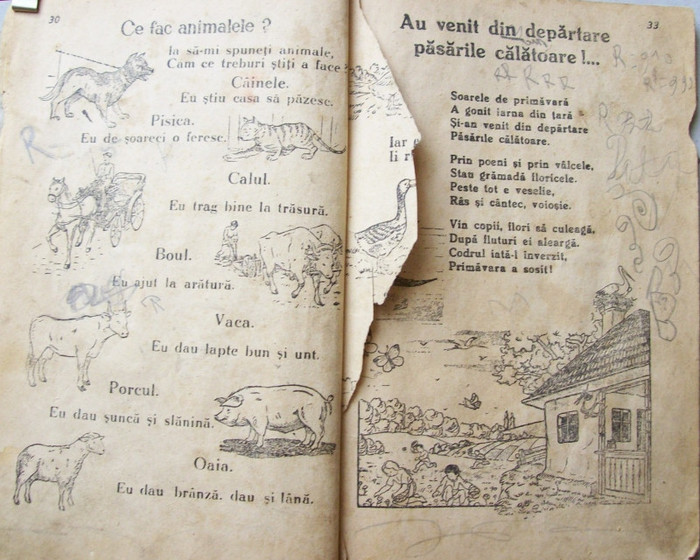 30
Ce fac animalele ?
Ia să-mi spuneți animale,
Cam ce treburi știți a face ?
Câinele.
Eu știu casa să păzesc.
Pisica.
Eu de șoareci o feresc.
Calul.
Eu trag bine la trăsură.
Boul.
Eu ajut la arătură.
Vaca.
Eu dau lapte bun și unt.
Porcul.
Eu dau șuncă și slănină.
Oaia.
Eu dau brânză, dau și lână.
Iar
Ii
33
Au venit din depărtare
păsările călătoare !...
Soarele de primăvară
A gonit iarna din țară
Și-au venit din depărtare
Păsările călătoare.
Prin poeni și prin vâlcele,
Stau grămadă floricele.
Peste tot e veselie,
Râs și cântec, voioșie.
Vin copii, flori să culeagă,
După fluturi ei aleargă.
Codrul iată-l înverzit,
Primăvara a sosit!
R
R R R R